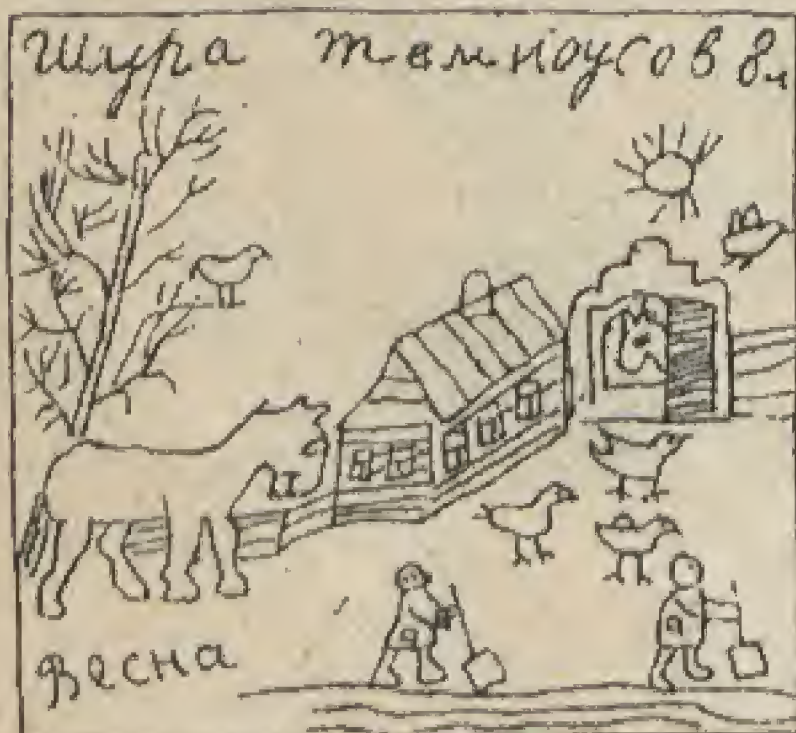 Шура Темноусов 8 л
Весна